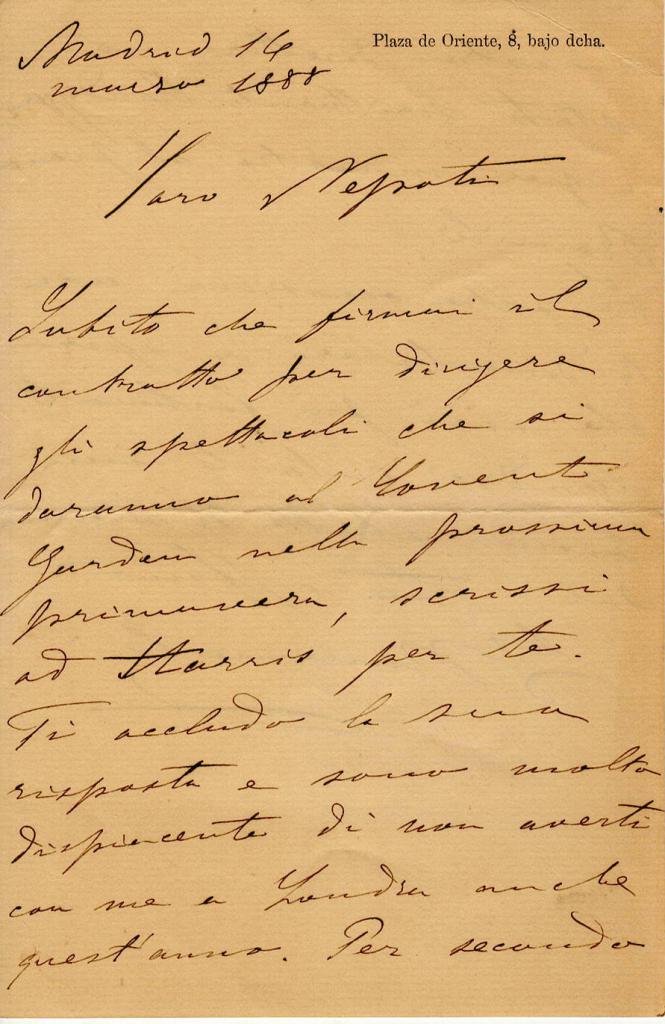 Plaza de Oriente, 8, bajo dcha.
Madrid 14
marzo 1888
Caro Nepoti
Subito che firmai il
contratto per dirigere
gli spettacoli che si
daranno al Covent
Garden nella prossima
primavera, scrissi
ad Harris per te.
Ti accludo la sua
risposta e sono molto
dispiacente di non averti
con me a Londra anche
quest'anno. Per secondo